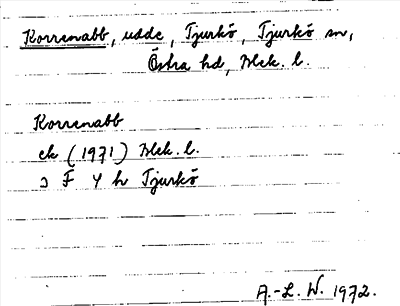 Korrenabb, udde, Tjurkö, Tjurkö sn,
Östra hd, Blek. l.
Korrenabb
ek (1971) Blek. l.
ɔ F Y h Tjurkö
A.-L. W. 1972.